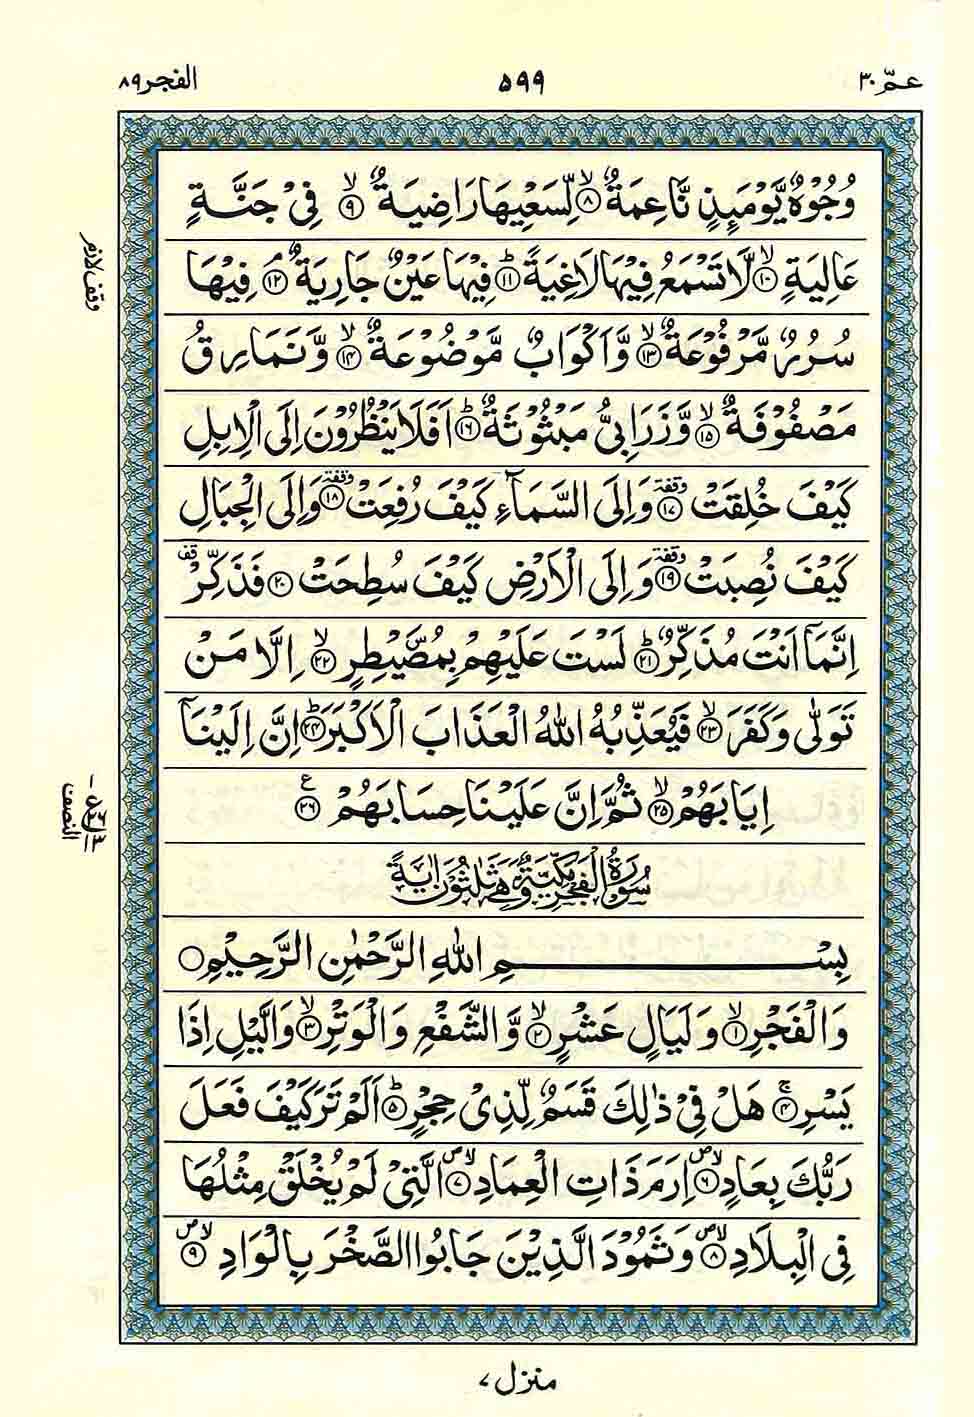 عمّ ٣٠
٥٩٩
الفجر ٨٩
وُجُوْهٌ يَّوْمَىِٕذٍ نَّاعِمَةٌ ۙ‏﴿۸﴾ لِّسَعْيِهَا رَاضِيَةٌ ۙ‏﴿۹﴾ فِىْ جَنَّةٍ
عَالِيَةٍ ۙ‏﴿۱۰﴾ لَّا تَسْمَعُ فِيْهَا لَاغِيَةً ؕ‏﴿۱۱﴾ فِيْهَا عَيْنٌ جَارِيَةٌ ۘ‏﴿۱۲﴾ فِيْهَا
سُرُرٌ مَّرْفُوْعَةٌ ۙ‏﴿۱۳﴾ وَّاَكْوَابٌ مَّوْضُوْعَةٌ ۙ‏﴿۱۴﴾ وَّنَمَارِقُ
مَصْفُوْفَةٌ ۙ‏﴿۱۵﴾ وَّزَرَابِىُّ مَبْثُوْثَةٌ ؕ‏﴿۱۶﴾ اَفَلَا يَنْظُرُوْنَ اِلَى الْاِبِلِ
كَيْفَ خُلِقَتْ وقفة ‏﴿۱۷﴾ وَاِلَى السَّمَآءِ كَيْفَ رُفِعَتْ وقفة ‏﴿۱۸﴾ وَاِلَى الْجِبَالِ
كَيْفَ نُصِبَتْ وقفة ‏﴿۱۹﴾ وَاِلَى الْاَرْضِ كَيْفَ سُطِحَتْ ‏﴿۲۰﴾ فَذَكِّرْ قف
اِنَّمَاۤ اَنْتَ مُذَكِّرٌ ؕ‏﴿۲۱﴾ لَسْتَ عَلَيْهِمْ بِمُصَۜيْطِرٍ ۙ‏﴿۲۲﴾ اِلَّا مَنْ
تَوَلّٰى وَكَفَرَ ۙ‏﴿۲۳﴾ فَيُعَذِّبُهُ اللّٰهُ الْعَذَابَ الْاَكْبَرَ ؕ‏﴿۲۴﴾ اِنَّ اِلَيْنَاۤ
اِيَابَهُمْ ۙ‏﴿۲۵﴾ ثُمَّ اِنَّ عَلَيْنَا حِسَابَهُمْ ع ‏﴿۲۶﴾
سُوْرَةُ الْفَجْرِ مَكِّيَّةٌ وَّهِىَ ثَلٰثُوْنَ اٰيَةً
بِسْمِ اللّٰهِ الرَّحْمٰنِ الرَّحِيْمِ ○
وَالْفَجْرِ ۙ‏﴿۱﴾ وَلَيَالٍ عَشْرٍ ۙ‏﴿۲﴾ وَّالشَّفْعِ وَالْوَتْرِ ۙ‏﴿۳﴾ وَالَّيْلِ اِذَا
يَسْرِ ۚ‏﴿۴﴾ هَلْ فِىْ ذٰلِكَ قَسَمٌ لِّذِىْ حِجْرٍ ؕ‏﴿۵﴾ اَلَمْ تَرَ كَيْفَ فَعَلَ
رَبُّكَ بِعَادٍ لاص ‏﴿۶﴾ اِرَمَ ذَاتِ الْعِمَادِ لاص ‏﴿۷﴾ الَّتِىْ لَمْ يُخْلَقْ مِثْلُهَا
فِى الْبِلَادِ لاص ‏﴿۸﴾ وَثَمُوْدَ الَّذِيْنَ جَابُوا الصَّخْرَ بِالْوَادِ لاص ‏﴿۹﴾
وقف لازم
النصف
منزل ٧